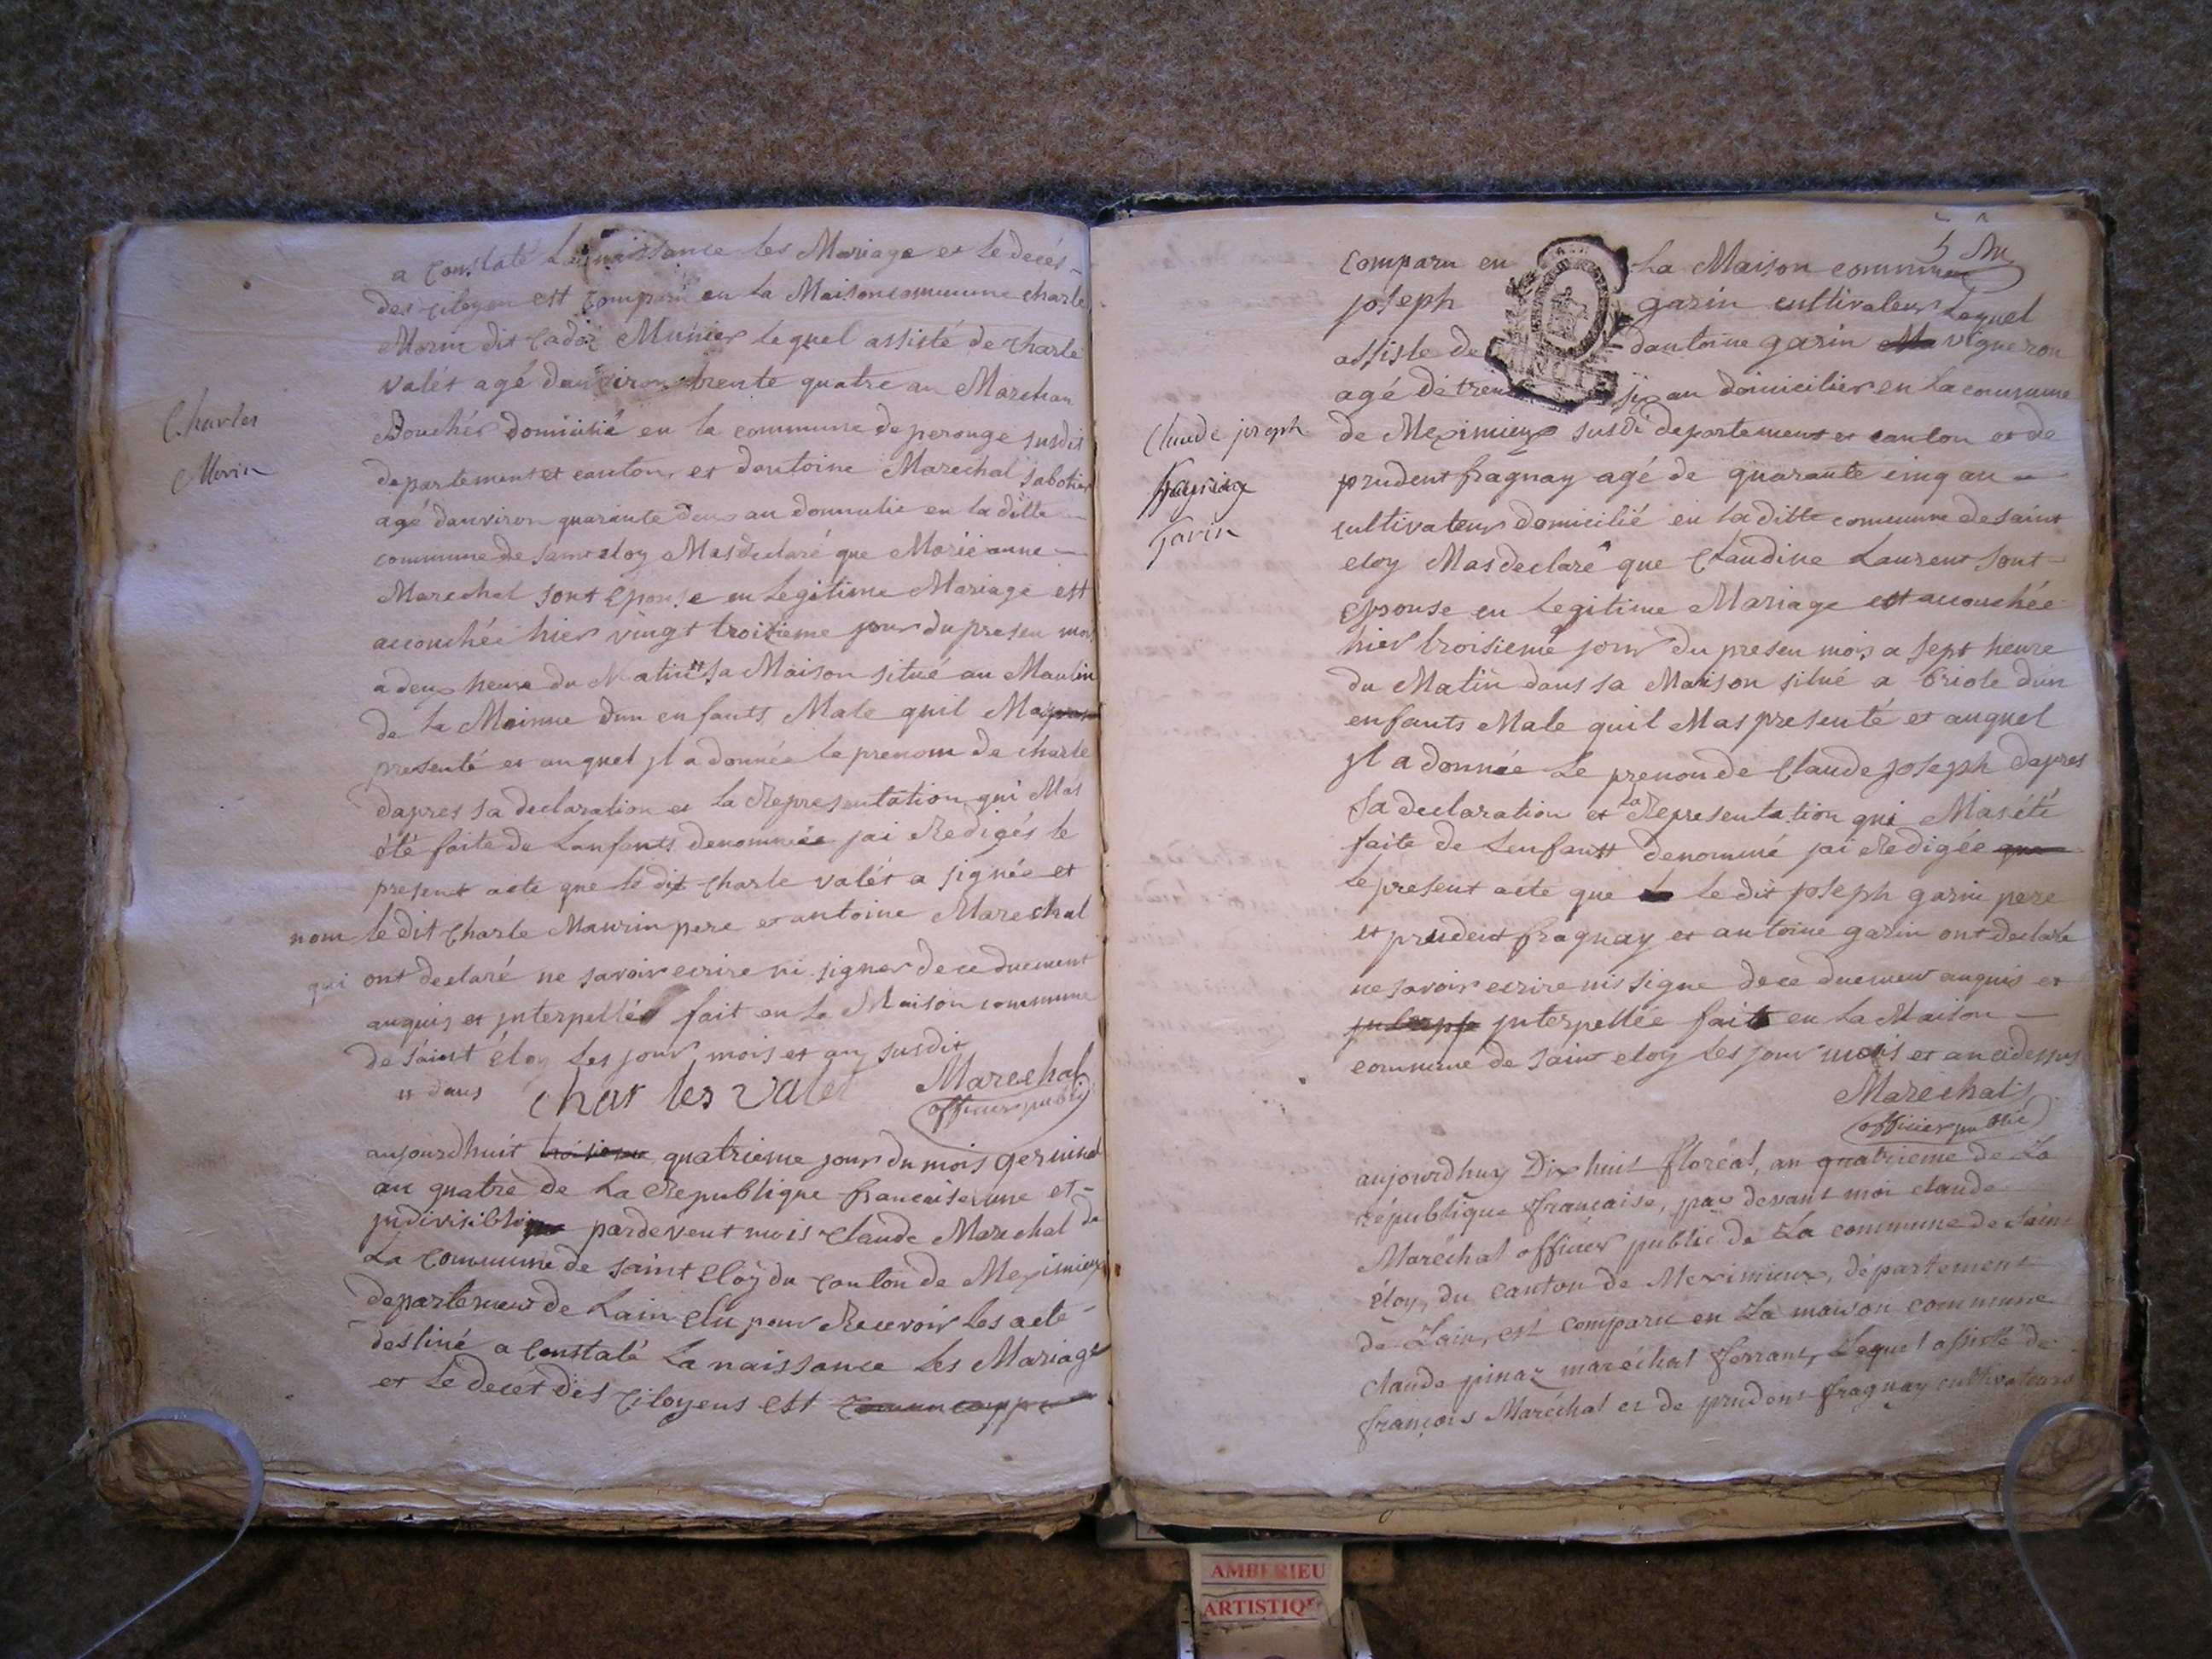 a constaté La naissance les Mariage et le decés
des citoyen est comparu en La Maison commune charle
Morin dit cadèt Munier lequel assisté de charle
valét agé danviron trente quatre an Marchan
Bouchér domicilié en la commune de perouge susdit
departement et canton, et dantoine Marechal sabotier
agé danviron quarante deux an domicilié en la ditte
commune de saint eloy Mas declaré que Marie anne
Marechal sont Epouse en Legitime Mariage est
accouchée hier vingt troisieme jour du presen mois
a deux heure du Matin " sa Maison situé au Maulin
de la Moinne dun enfants Male quil Ma
presenté et auquel jl a donnée le prenom de charle
dapres sa declaration et La Representation qui Mas
été faite de Lanfants denommée jai Redigés le
present acte que le dit charle valét a signée et
nom le dit charle Maurin pere et antoine Marechal
qui ont declaré ne savoir ecrire ni signer de ce duement
anquis et jnterpellés fait en La Maison commune
de saint éloy Les jour mois et an susdit
" dans char les valet Marechal
officier public
Charles
Morin
aujourdhuit troisieme quatrieme jour du mois germinal
an quatre de La Republique francaise une et
jndivisible pardevent mois claude Marechal de
La commune de saint eloy du canton de Meximieux
departement de Lain elu pour Recevoir Les acte
destiné a constaté La naissance Les Mariage
et Le decét des citoyens est
5
comparu en La Maison commune
joseph garin cultivateur Lequel
assisté de dantoine garin vigneron
agé de trente six an domicilier en La commune
de Meximieux susdi departement et canton et de
prudent fragnay agé de quarante cinq an
cultivateur domicilié en la ditte commune de saint
eloy Mas declaré que Claudine Laurent sont
epouse en Legitime Mariage est accouchée
hier troisieme jour du presen mois a sept heure
du Matin dans sa Maison situé a briole dun
enfants Male quil Mas presenté et auquel
jl a donnée Le prenon de Claude joseph dapres
sa declaration et La Representation qui Mas été
faite de Lenfant denommé jai Redigée que
Le present acte que le dit joseph garin pere
et prudent fragnay et antoine garin ont declaré
ne savoir ecrire nis signe de ce duement anquis et
jnterpellée fait en La Maison
commune de saint eloy Les jour mois et an cidessus
Marechal
officier public
Claude joseph
Garin
aujourdhuy Dix huit floréal, an quatrieme de La
république française, par devant moi claude
Maréchal officier public de La commune de Saint
éloy, du canton de Meximieux, département
de Lain, est comparu en La maison commune
claude pinaz maréchal ferrant, Lequel assisté de
françois Maréchal et de prudent fragnay cultivateurs
AMBERIEU
ARTISTIQ